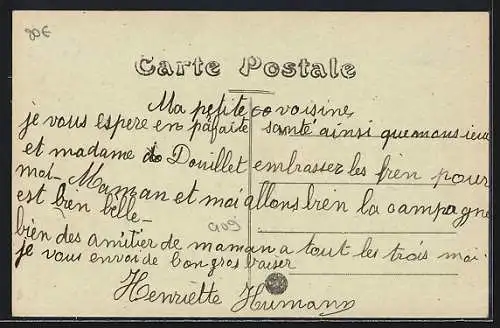 90€
Carte Postale
Ma petite voisine
je vous espere en pafaite santé ainsi que monsieur
et madame Douillet embrasser les bien pour
moi - Maman et moi allons bien la campagne
est bien belle -
909
bien des amitier de maman a tout les trois moi
je vous envoi de bon gros baiser
Henriette Humann